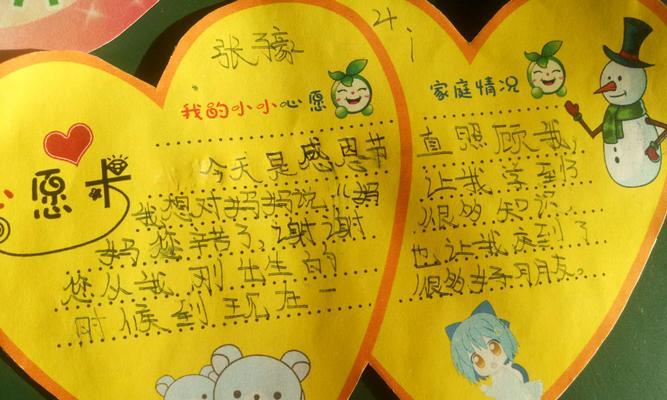 张豪
我的小小心愿
愿卡
今天是感恩节
我想对妈妈说“妈
妈您辛苦了,谢谢
您从我刚出生的
时候到现在一
家庭情况
直照顾我,
让我学到
很多知识,
也让我交到了
很多好朋友。